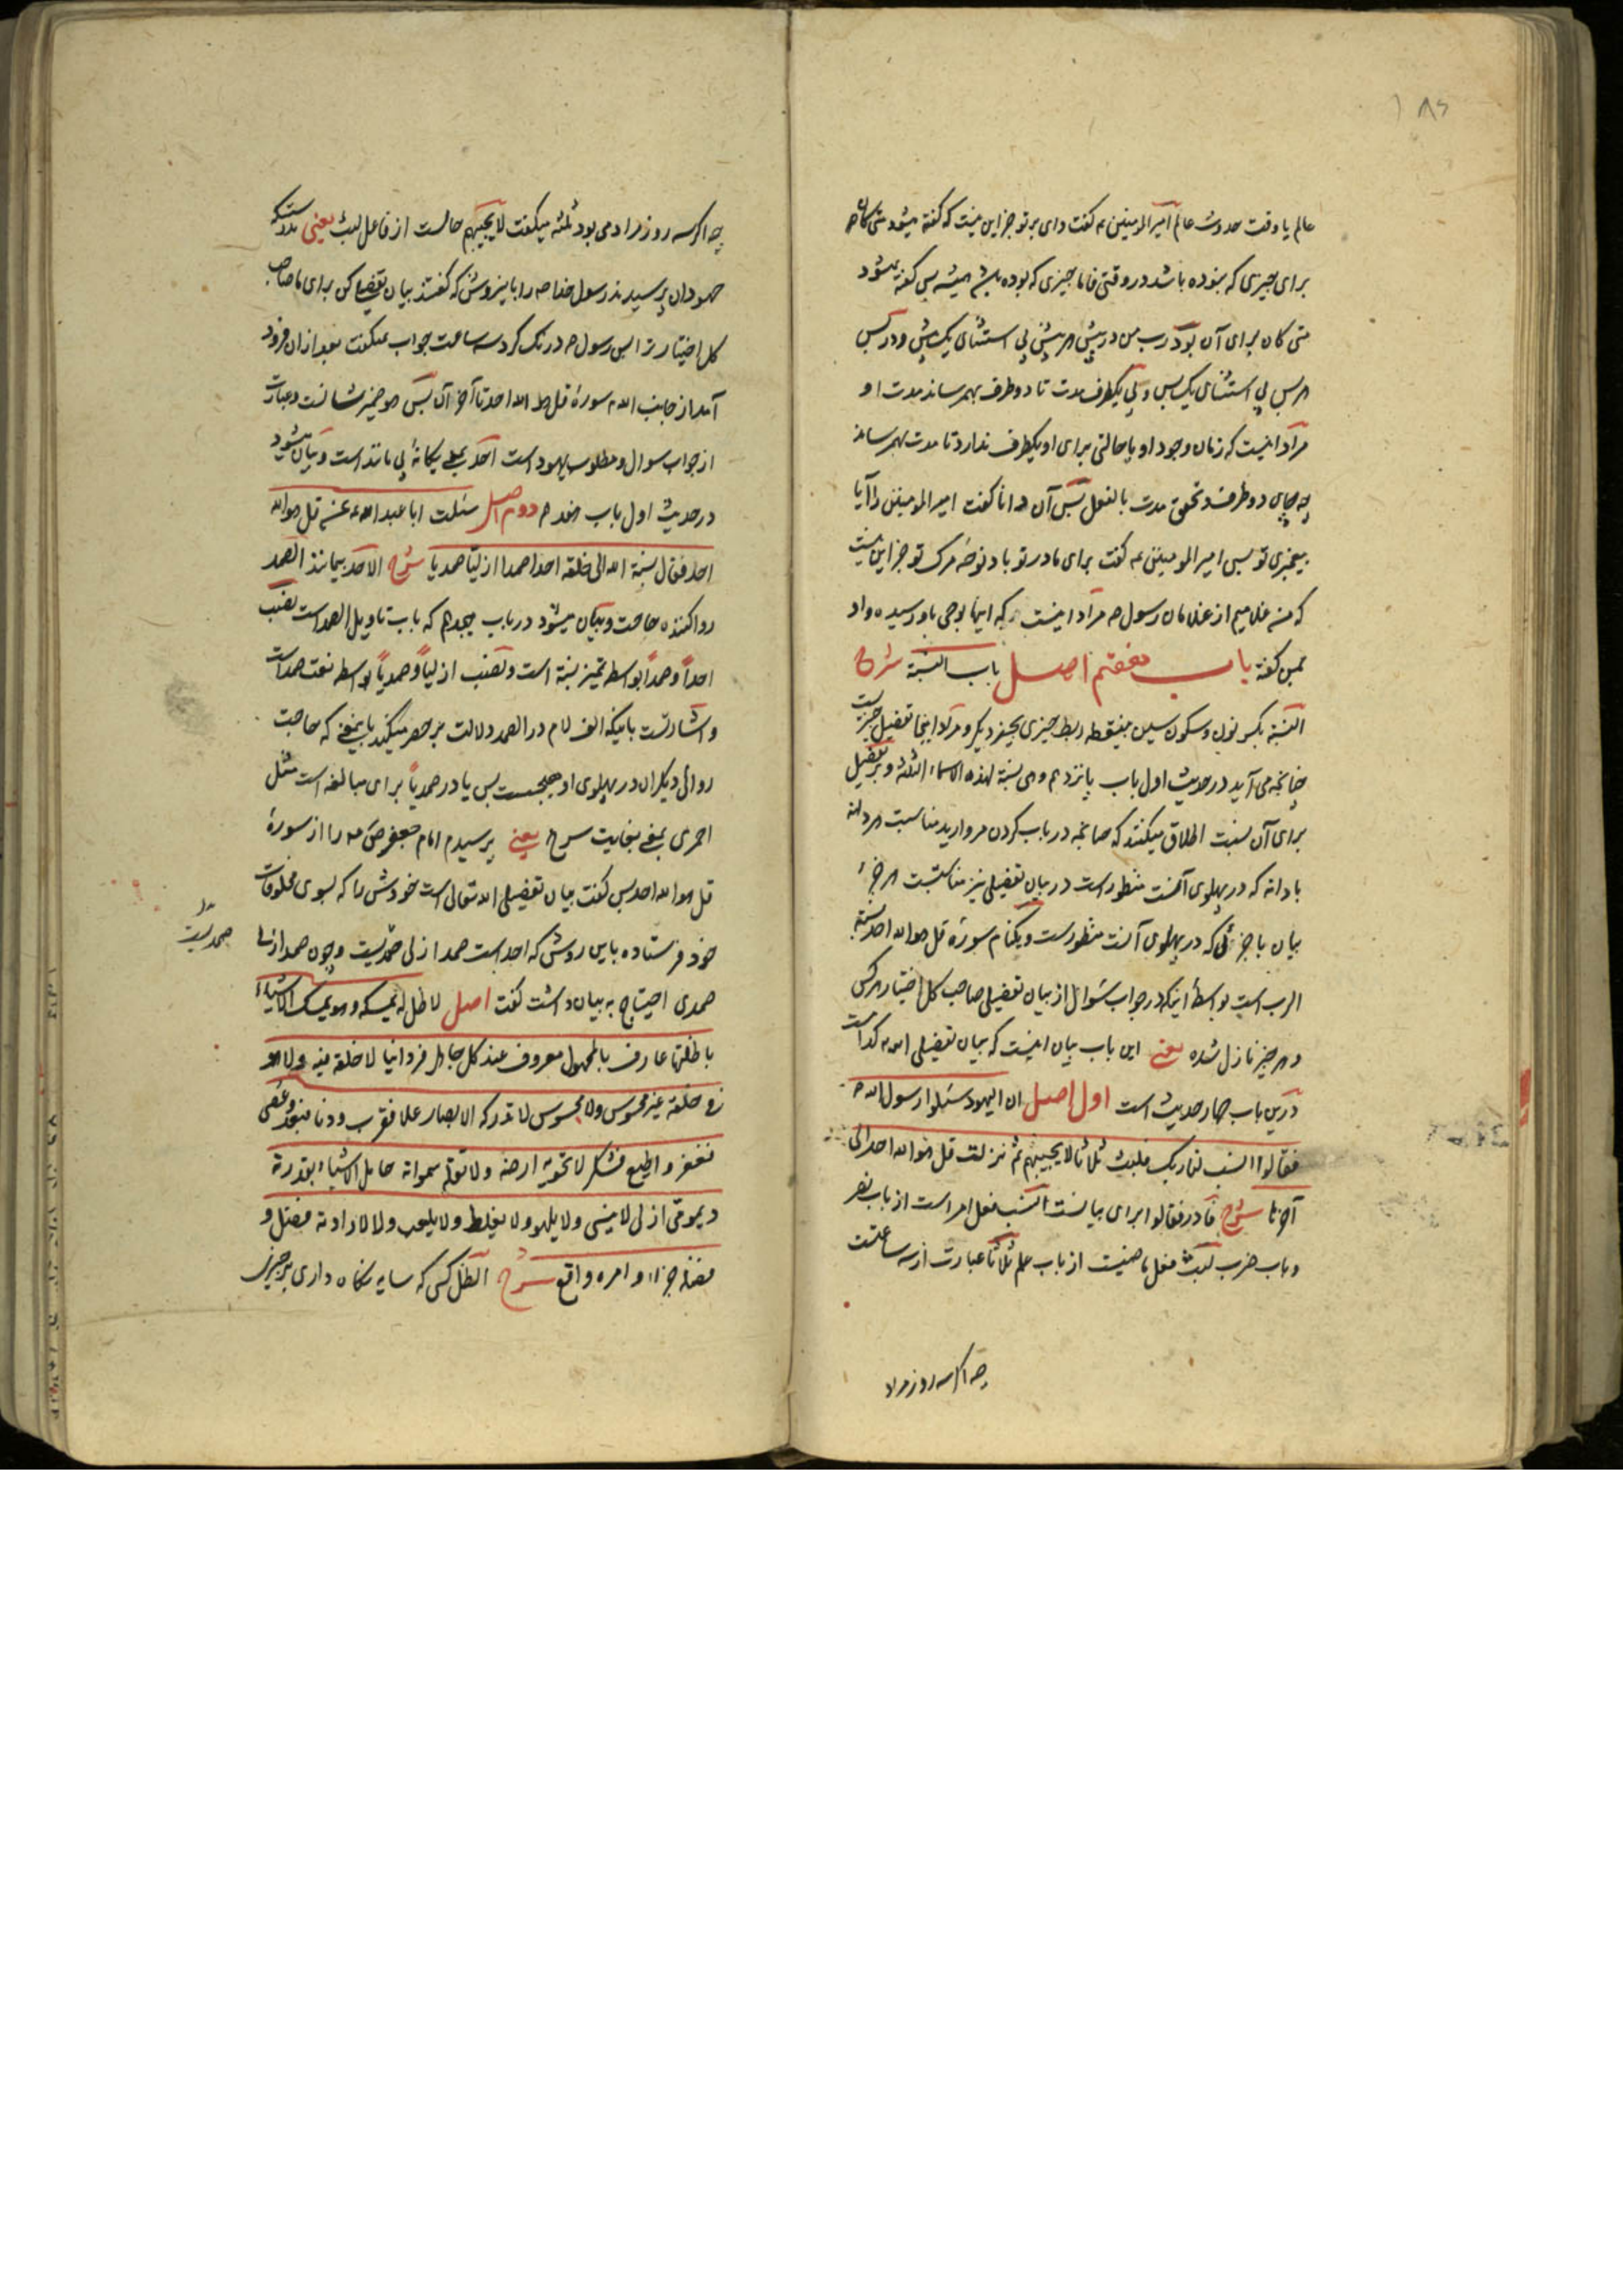 ۱۸۶
عالم یا وقت حدوث عالم امیر المومنین ع گفت وای بر تو جز این نیست که گفته میشود متی کان
برای چیزی که نبوده باشد در وقتی فاما چیزی که بوده باشد همیشه پس گفته نمیشود
متی کان برای آن بود رب من در پیش هر پیش بی استثنای یک پیش و در پس
هر پس بی استثنای یک پس و بی یکطرف مدت تا دو طرف بهم رساند مدت او
مراد اینست که زمان وجود او یا حالتی برای او یکطرف ندارد تا مدت بهم رساند
چه جای دو طرف و تحقق مدت بالفعل پس آن دانا گفت امیر المومنین را آیا
پیغمبری تو پس امیر المومنین ع گفت برای مادر تو باد نوحهٔ مرگ تو جز این نیست
که من غلامیم از غلامان رسول ص مراد اینست که اینها بوحی باو رسیده و او
بمن گفته باب هفتم اصل باب النسبة شرح
النسبة بکسر نون و سکون سین بینقطه ربط چیزی بچیز دیگر و مراد اینجا تفصیل چیزیست
چنانچه می آید در حدیث اول باب پانزدهم وهی نسبة لهذه الاسماء الثلثة و بر تفصیل
برای آن نسبت اطلاق میکنند که چنانچه در باب کردن مروارید مناسبت هر دانه
با دانه که در پهلوی آنست منظور است در بیان تفصیلی نیز مناسبت هر جزء
بیان با جزئی که در پهلوی آنست منظورست و یکنام سورهٔ قل هو الله احد نسبة
الرب است بواسطهٔ اینکه در جواب سوال از بیان تفصیلی صاحب کل اختیار هر کس
و هر چیز نازل شده یعنی این باب بیان اینست که بیان تفصیلی الله کدامست
درین باب چهار حدیث است اول اصل ان الیهود سئلوا رسول الله ص
فقالوا انسب لنا ربک فلبث ثلاثا لا یجیبهم ثم نزلت قل هو الله احد الی
آخرها شرح فا در فقالوا برای بیانست انسب فعل امر است از باب نصر
و باب ضرب لبث فعل ماضیست از باب علم ثلاثا عبارت از سه ساعتست
چه اگر سه روز مراد
چه اگر سه روز مراد می بود ثلثه میگفت لا یجیبهم حالست از فاعل لبث یعنی بدرستیکه
جهودان پرسیدند رسول خدا ص را باینروش که گفتند بیان تفصیلی کن برای ما صاحب
کل اختیار ترا پس رسول ص درنگ کرد سه ساعت جواب نمیگفت بعد از آن فرود
آمد از جانب الله سورهٔ قل هو الله احد تا آخر آن پس هو ضمیر شانست و عبارت
از جواب سوال و مطلوب یهود است احد بمعنی یگانهٔ بی مانند است و بیان میشود
در حدیث اول باب هفدهم دوم اصل سئلت ابا عبد الله ع عن قل هو الله
احد فقال نسبة الله الی خلقه احدا صمدا ازلیا صمدیا شرح الاحد بیمانند الصمد
روا کننده حاجت و بیان میشود در باب هجدهم که باب تاویل الصمد است نصب
احداً و صمداً بواسطه تمیز نسبة است و نصب ازلیاً و صمدیاً بواسطه نعت صمداست
و اشارتست باینکه الف لام در الصمد دلالت بر حصر میکند باینمعنی که حاجت
روائی دیگران در پهلوی او هیچست پس یا در صمدیاً برای مبالغه است مثل
احمری بمعنی بغایت سرخ یعنی پرسیدم امام جعفر ص ع را از سورهٔ
قل هو الله احد پس گفت بیان تفصیلی الله تعالی است خودش را که بسوی مخلوقات
خود فرستاده باین روش که احد است صمد ازلی صمدیست و چون صمد ازلی
صمدی احتیاج به بیان داشت گفت اصل لا ظل له یمسکه وهو یمسک الاشیاء
باظلتها عارف بالمجهول معروف عند کل جاهل فردانیا لا خلقه فیه ولا هو
فی خلقه غیر محسوس ولا مجسوس لا تدرکه الابصار علا فقرب ودنا فبعد وعصی
فغفر واطیع فشکر لا تحویه ارضه ولا تقله سمواته حامل الاشیاء بقدرته
دیمومی ازلی لا ینسی ولا یلهو ولا یغلط ولا یلعب ولا لارادته فصل و
فصله جزاء و امره واقع شرح الظل کسی که سایه نگاه داری بر چیزی
صمدیست